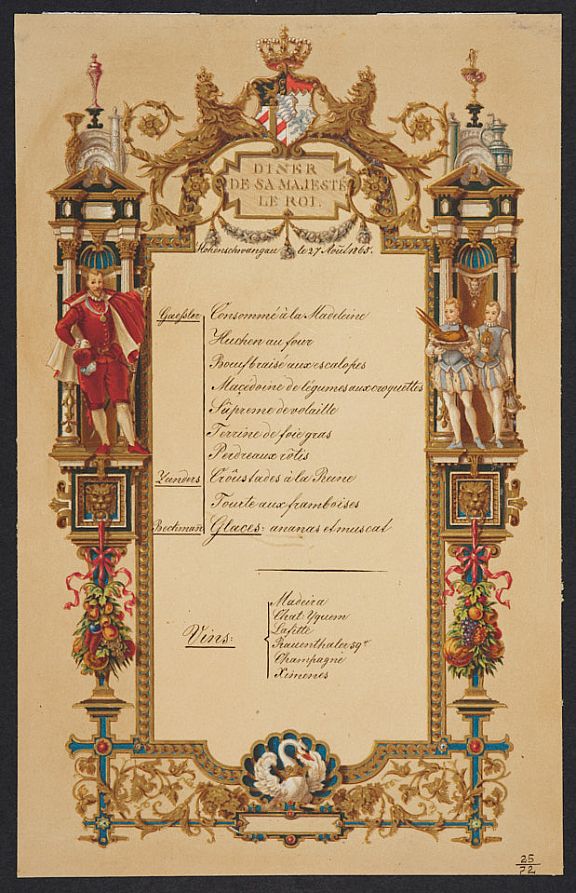 DINER
DE SA MAJESTÉ
LE ROI.
Hohenschwangau le 27 Août 1865.
Gaessler Consommé à la Madeleine
Huchen au four
Boeuf braisé aux escalopes
Maçedoine de légumes aux croquettes
Süpreme de volaille
Terrine de foie gras
Perdreaux rôtis
Zanders Croûstades à la Reine
Tourte aux framboises
Bechmañ Glaces: ananas et muscat
Vins:
Madeira
Chat. Yquem
Lafitte
Rauenthaler 59er
Champagne
Ximenes
25
72